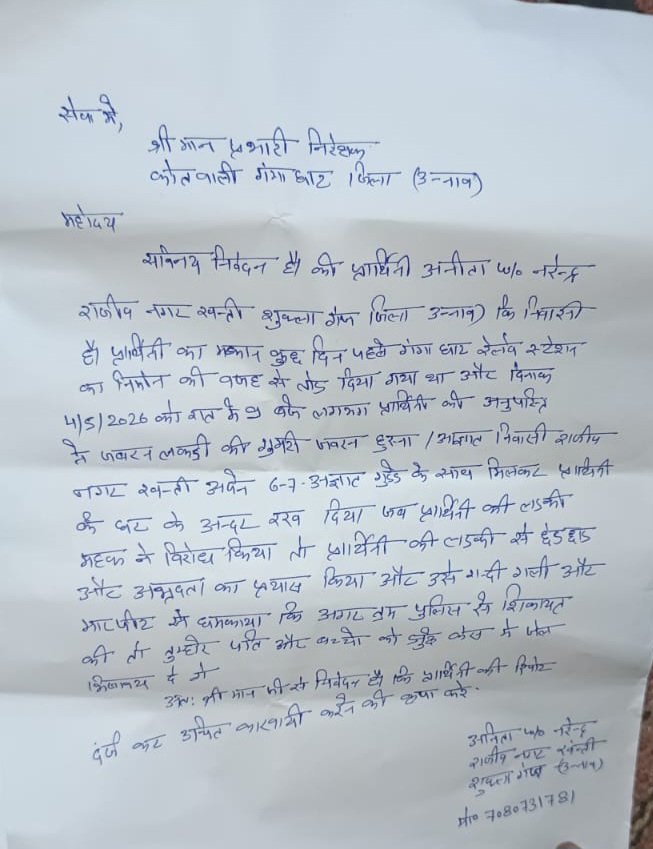 सेवा मे,
श्री मान प्रभारी निरेक्षक
कोतवाली गंगा घाट जिला (उन्नाव)
महोदय
सविनय निवेदन है की प्रार्थिनी अनीता w/o नरेन्द्र
राजीव नगर खन्ती शुक्ला गंज जिला उन्नाव) कि निवासी
है। प्रार्थिनी का मकान कुछ दिन पहले गंगा घाट रेलवे स्टेशन
का निर्माण की वजह से तोड दिया गया था और दिनाक
4/5/2026 को रात के 9 बजे लगभग प्रार्थिनी की अनुपस्थि
मे जबरन लकडी की गुमटी जबरन / अज्ञात निवासी राजीव
नगर खन्ती अपने 6-7 अज्ञात गुंडे के साथ मिलकर प्रार्थिनी
के घर के अन्दर रख दिया जब प्रार्थिनी की लडकी
महक ने विरोध किया तो प्रार्थिनी की लडकी से छेडछाड
और अभद्रता का प्रयास किया और उसे गन्दी गाली और
मारपीट से धमकाया कि अगर तुम पुलिस से शिकायत
की तो तुम्हारे पति और बच्चो को झुठे केस मे जेल
भिजवाय दे गे
अतः श्री मान जी से निवेदन है कि प्रार्थिनी की रिपोट
दर्ज कर उचित कारवायी करने की कृपा करे.
अनिता w/o नरेन्द्र
राजीव नगर खन्ती
शुक्ला गंज (उन्नाव)
मो० 7080731781